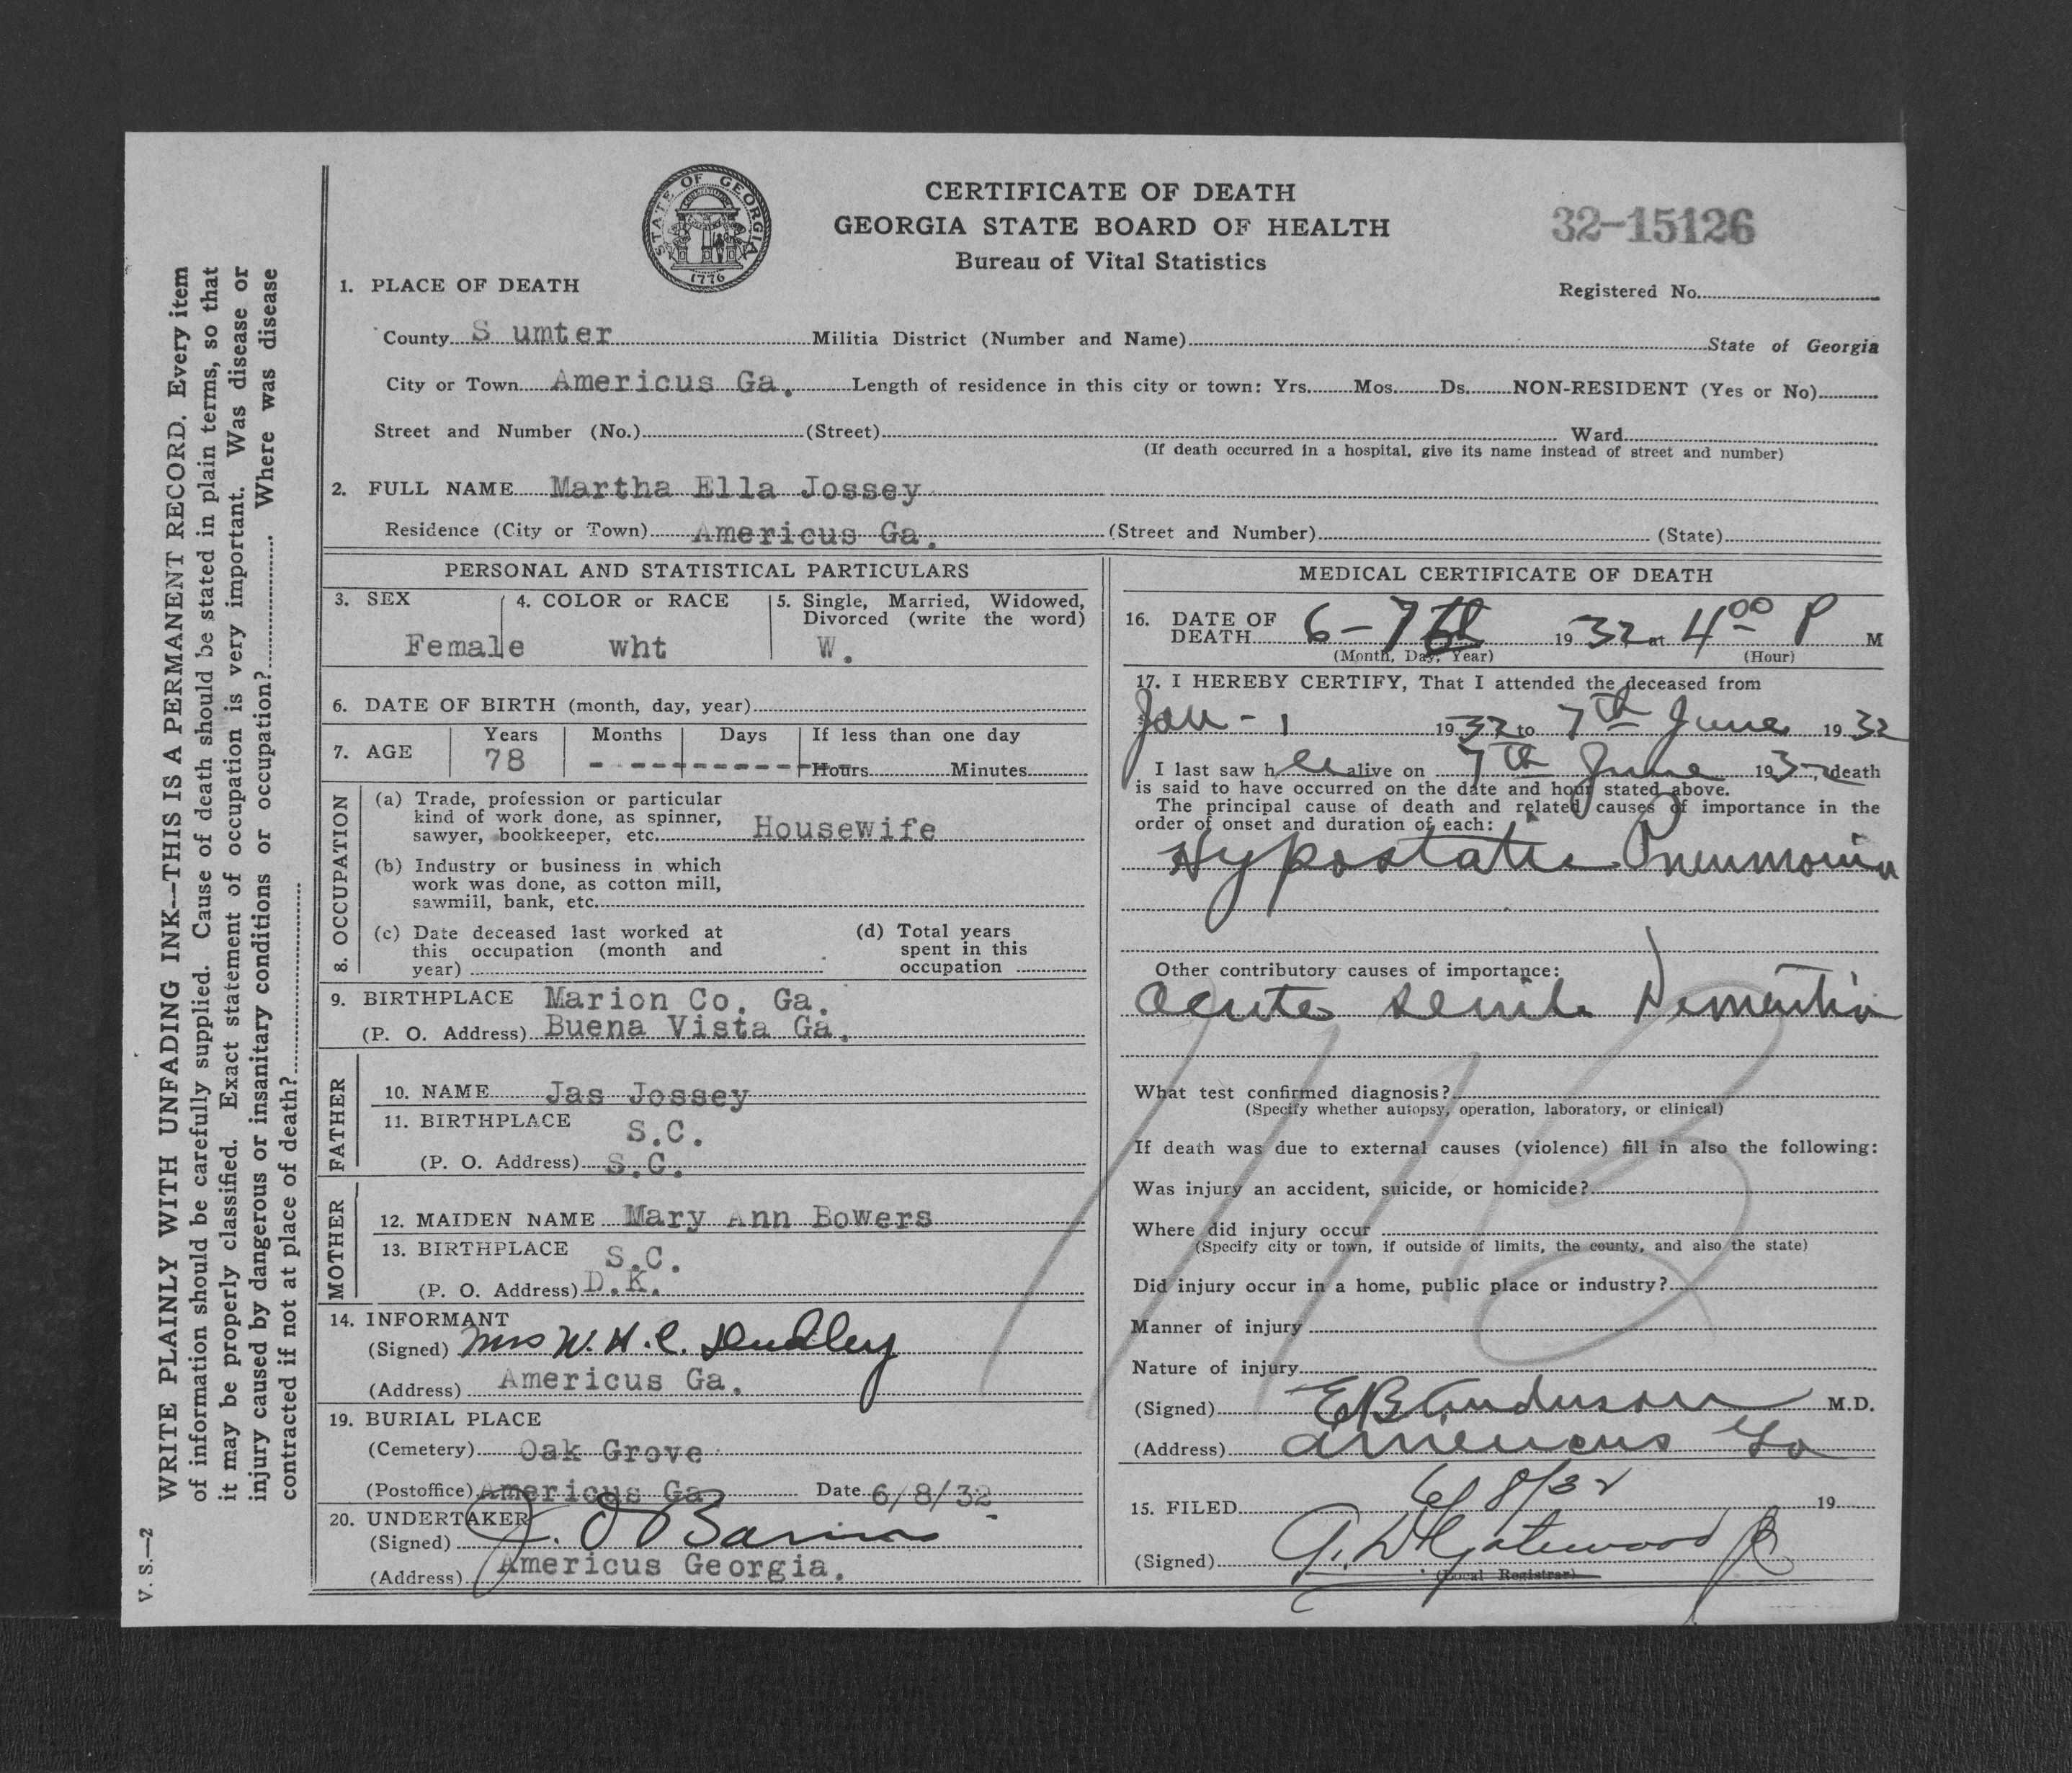 STATE OF GEORGIA
1776
CERTIFICATE OF DEATH
GEORGIA STATE BOARD OF HEALTH
Bureau of Vital Statistics
32-15126
Registered No.
1. PLACE OF DEATH
County S umter Militia District (Number and Name) State of Georgia
City or Town Americus Ga. Length of residence in this city or town: Yrs. Mos. Ds. NON-RESIDENT (Yes or No)
Street and Number (No.) (Street) Ward
(If death occurred in a hospital, give its name instead of street and number)
2. FULL NAME Martha Ella Jossey
Residence (City or Town) Americus Ga. (Street and Number) (State)
PERSONAL AND STATISTICAL PARTICULARS
3. SEX 4. COLOR or RACE 5. Single, Married, Widowed,
Divorced (write the word)
Female wht W.
6. DATE OF BIRTH (month, day, year)
7. AGE Years Months Days If less than one day
78 Hours Minutes
8. OCCUPATION
(a) Trade, profession or particular
kind of work done, as spinner,
sawyer, bookkeeper, etc. Housewife
(b) Industry or business in which
work was done, as cotton mill,
sawmill, bank, etc.
(c) Date deceased last worked at
this occupation (month and
year)
(d) Total years
spent in this
occupation
9. BIRTHPLACE Marion Co. Ga.
(P. O. Address) Buena Vista Ga.
FATHER
10. NAME Jas Jossey
11. BIRTHPLACE S.C.
(P. O. Address) S.C.
MOTHER
12. MAIDEN NAME Mary Ann Bowers
13. BIRTHPLACE S.C.
(P. O. Address) D.K.
14. INFORMANT
(Signed) Mrs W. H. C. Dudley
(Address) Americus Ga.
19. BURIAL PLACE
(Cemetery) Oak Grove
(Postoffice) Americus Ga Date 6/8/32
20. UNDERTAKER
(Signed)
(Address) Americus Georgia.
MEDICAL CERTIFICATE OF DEATH
16. DATE OF
DEATH 6-7th 1932 at 4 00 P M
(Month, Day, Year) (Hour)
17. I HEREBY CERTIFY, That I attended the deceased from
Jan - 1 1932 to 7th June 1932
I last saw h er alive on 7th June 1932, death
is said to have occurred on the date and hour stated above.
The principal cause of death and related causes of importance in the
order of onset and duration of each:
Hypostatic Pneumonia
Other contributory causes of importance:
Acute Senile Dementia
What test confirmed diagnosis?
(Specify whether autopsy, operation, laboratory, or clinical)
If death was due to external causes (violence) fill in also the following:
Was injury an accident, suicide, or homicide?
Where did injury occur
(Specify city or town, if outside of limits, the county, and also the state)
Did injury occur in a home, public place or industry?
Manner of injury
Nature of injury
(Signed) E B Anderson M.D.
(Address) Americus Ga
15. FILED 6/8/32 19
(Signed)
(Local Registrar)
WRITE PLAINLY WITH UNFADING INK--THIS IS A PERMANENT RECORD. Every item
of information should be carefully supplied. Cause of death should be stated in plain terms, so that
it may be properly classified. Exact statement of occupation is very important. Was disease or
injury caused by dangerous or insanitary conditions or occupation? Where was disease
contracted if not at place of death?
V. S.—2